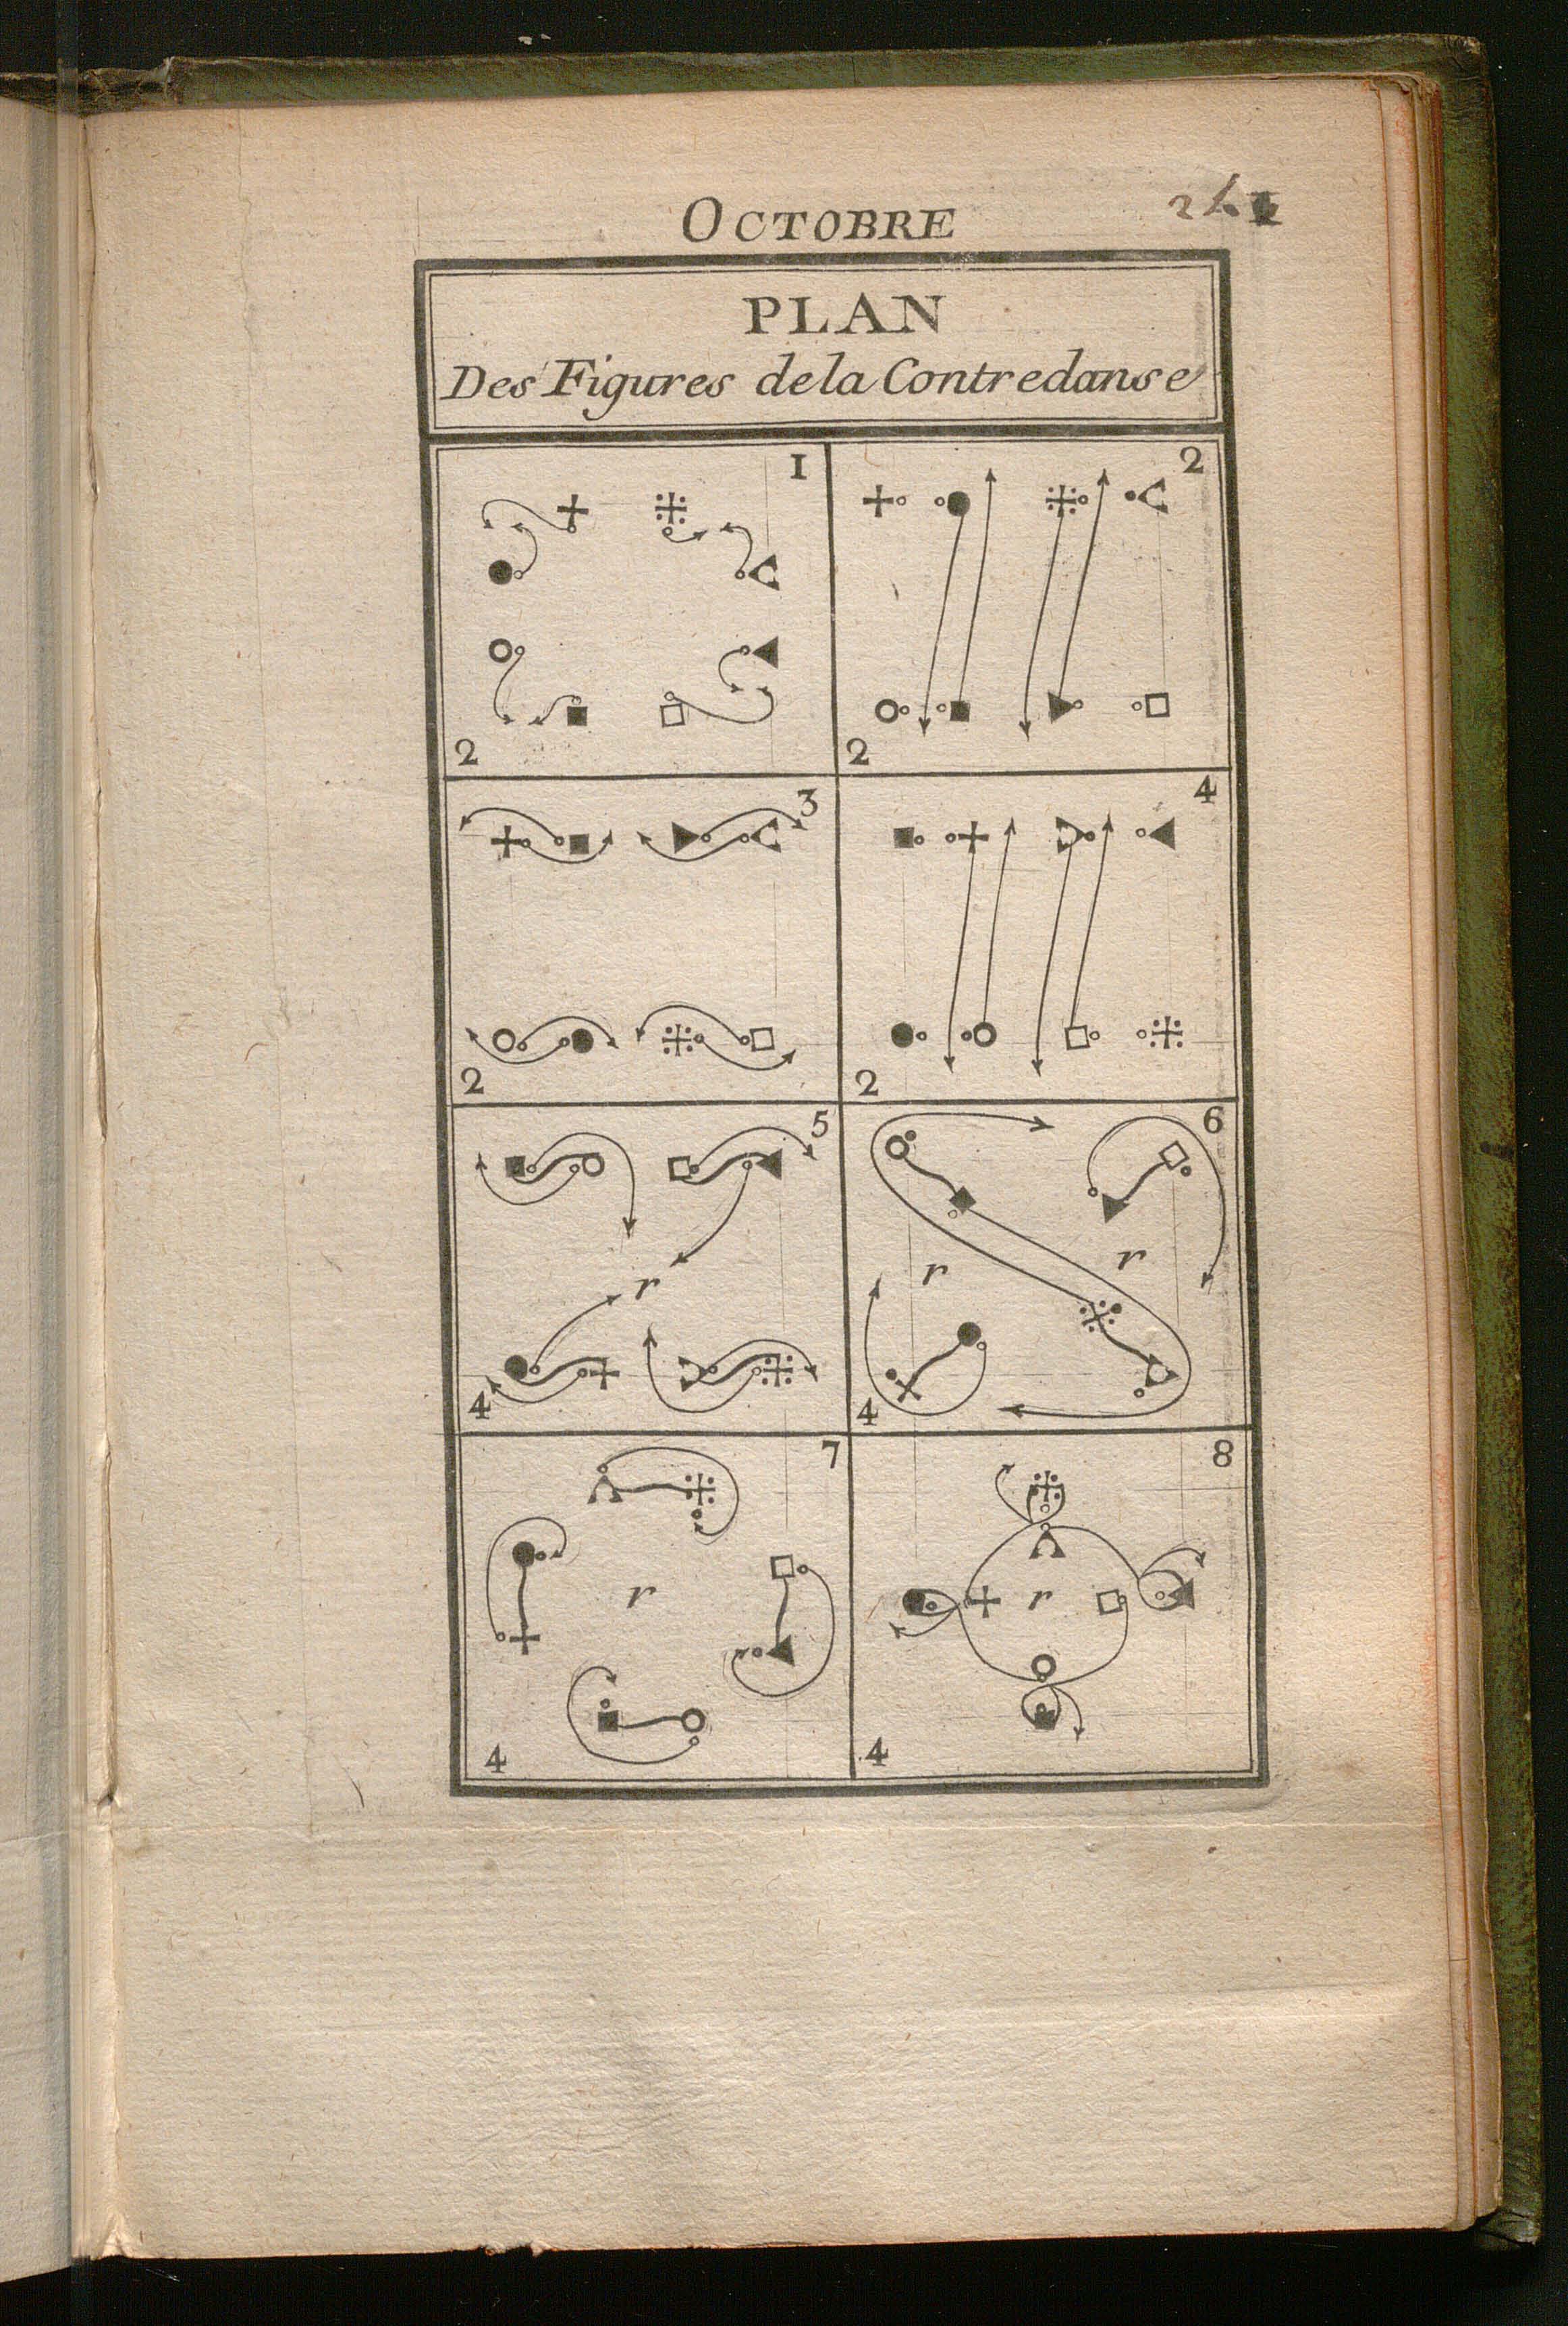 OCTOBRE
PLAN
Des Figures de la Contredanse
1
2
2
2
3
2
4
2
5
r
4
6
r
r
4
7
r
4
8
r
4